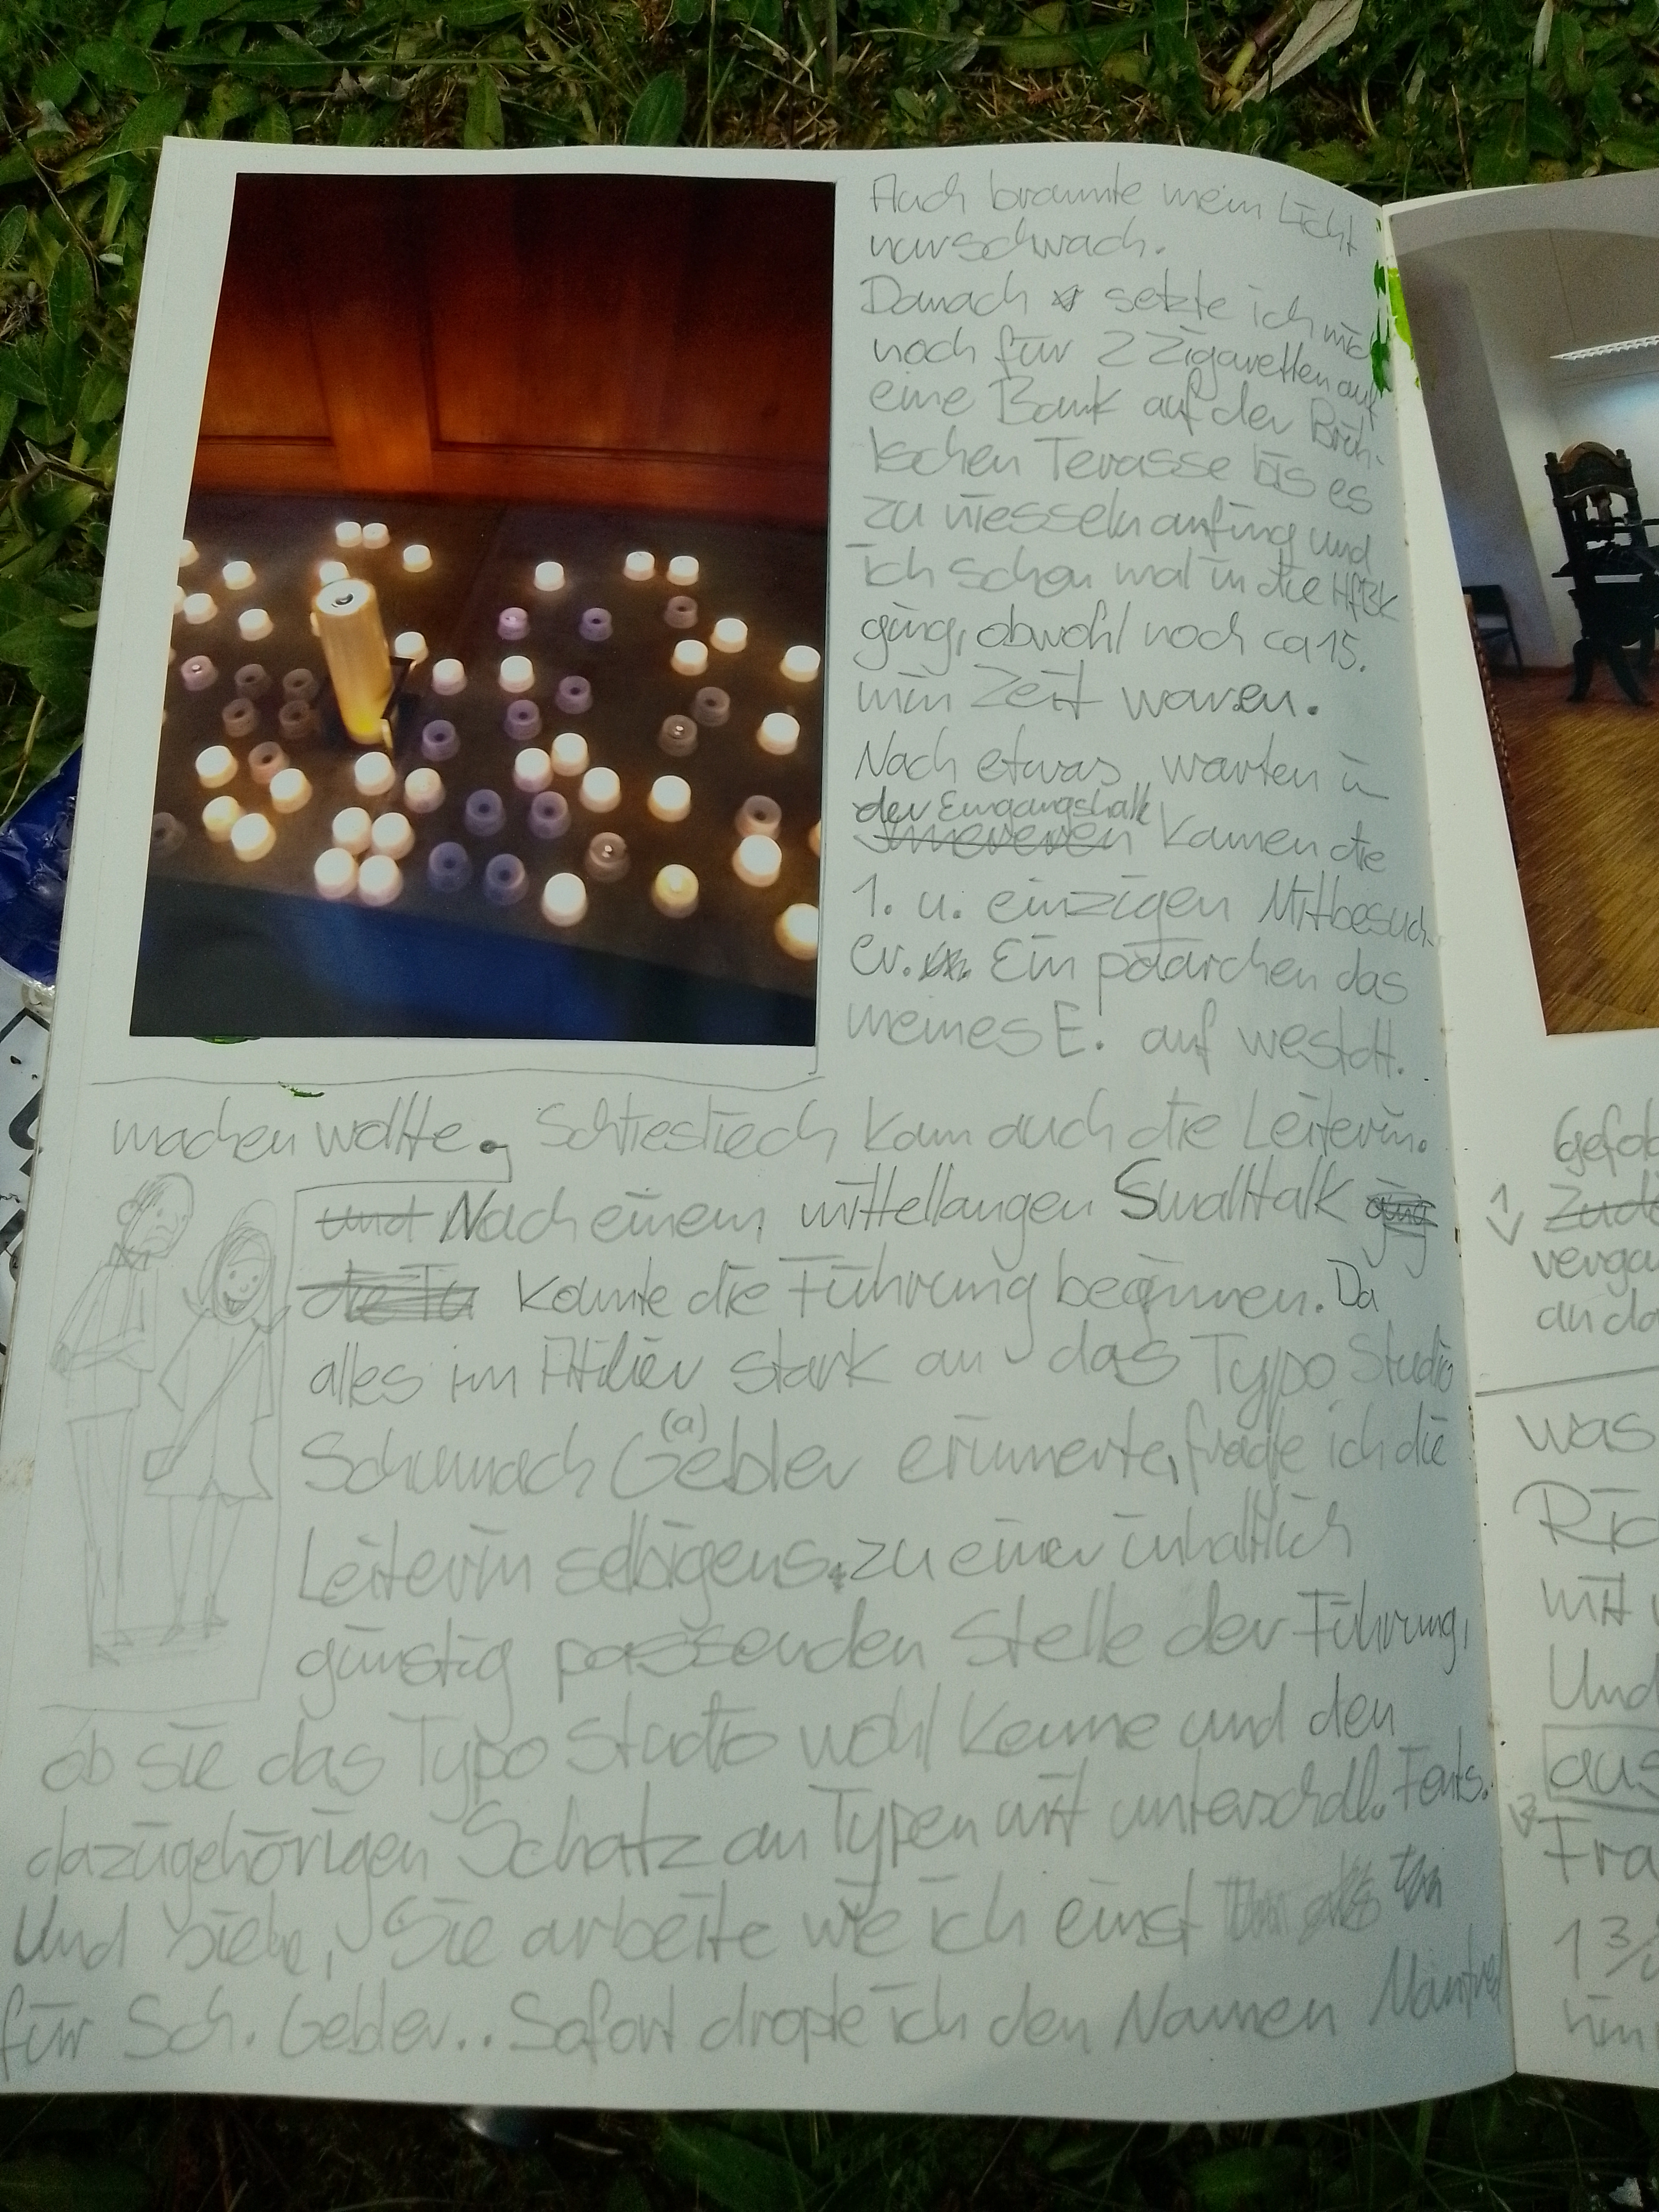 Auch brannte mein Licht
nur schwach.
Danach setzte ich mich
noch für 2 Zigaretten auf
eine Bank auf der Brüh-
lschen Terasse bis es
zu niesseln anfing und
ich schon mal in die HfBK
ging, obwohl noch ca 15.
min Zeit waren.
Nach etwas warten in
der Eingangshalle
kamen die
1. u. einzigen Mitbesuch-
er. Ein päärchen das
meines E. auf westdt.
machen wollte. Schliesliech kam auch die Leiterin.
und Nach einem mittellangen Smalltalk
konnte die Führung beginnen. Da
alles im Atilier stark an das Typo Studio
(a)
Schumach Gebler erinnerte, fragte ich die
Leiterin selbigens zu einer inhaltlich
günstig passenden Stelle der Führung,
ob sie das Typo Studio wohl kenne und den
dazugehörigen Schatz an Typen mit unterschdl. Fonts.
Und siehe, Sie arbeite wie ich einst
für Sch. Gebler.. Sofort dropte ich den Namen Manfred
1
was
mit
Und
aus
1 3/